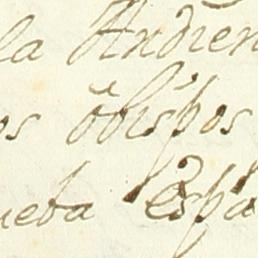 la Audien
os obispos
ueba Espa